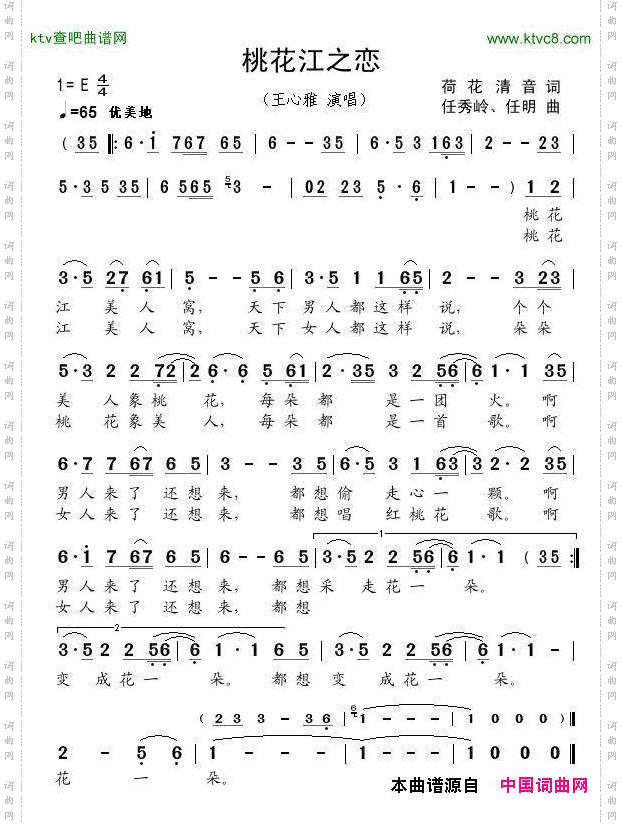 ktv查吧曲谱网 www.ktvc8.com
桃花江之恋
1= E 4/4 荷 花 清 音 词
（王心雅 演唱） 任秀岭、任明 曲
♩=65 优美地
( 35 | 6·i 767 65 | 6 - - 35 | 6·5 3 5 3 163 | 2 - - 23 |
5·3 5 35 | 6 565 3 - | 02 23 5·6 | 1 - - ) 1 2 |
桃花
桃花
3·5 27 61 | 5 - - 5 6 | 3·5 1 1 65 | 2 - - 3 23 |
江 美 人 窝， 天下 男人都这样 说， 个个
江 美 人 窝， 天下 女人都这样 说， 朵朵
5·3 2 2 72 | 2 6·6 5 61 | 2·35 3 2 56 | 6 1·1 35 |
美 人象桃 花， 每朵都 是一团 火。 啊
桃 花象美 人， 每朵都 是一首 歌。 啊
6·7 7 67 65 | 3 - - 3 35 | 6·5 3 5 1 63 | 3 2·2 35 |
男人来了 还想来， 都想偷 走心一 颗。 啊
女人来了 还想来， 都想唱 红桃花 歌。啊
1
6·i 7 67 65 | 6 - - 6 56 | 3·5 2 2 56 | 6 1·1 ( 35 :|
男人来了 还想来， 都想采 走花一 朵。
女人来了 还想来， 都想
2
3·5 2 2 56 | 6 1·1 6 56 | 3·5 2 2 56 | 6 1·1 - |
变 成花一 朵。 都想 变 成花一 朵。
( 2 3 3 - 2 3 6 | 6 1 - - - | 1 - - - ) ||
2 - 5 6 | 1 - - - | 1 - - - | 1 - - - ||
花 一 朵。
本曲谱源自 中国词曲网